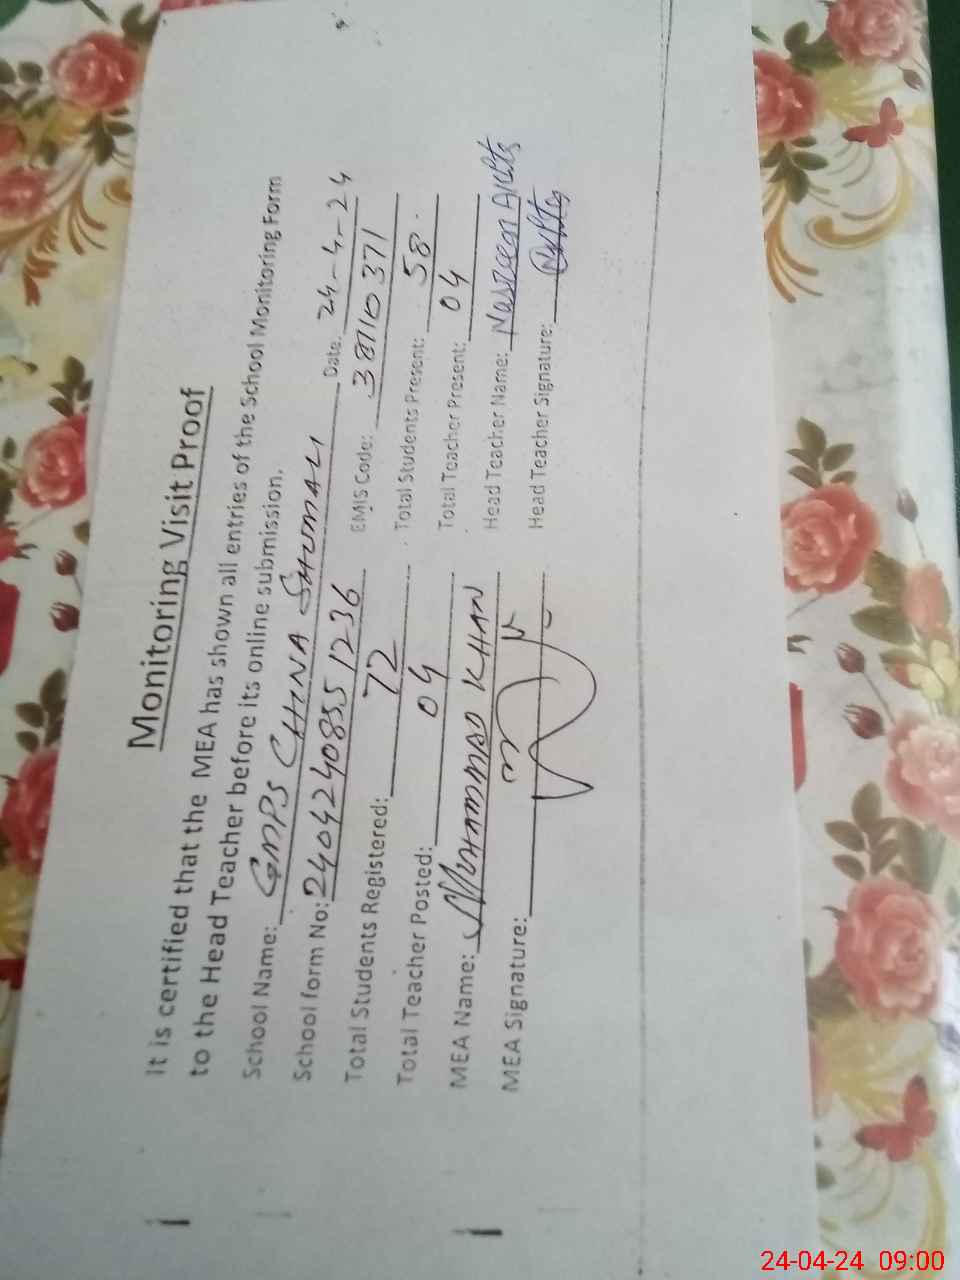 Monitoring Visit Proof
It is certified that the MEA has shown all entries of the School Monitoring Form
to the Head Teacher before its online submission.
School Name: GMPS CHINA SHUMALI Date. 24-4-24
School form No: 24042408551236 EMIS Code: 38110371
Total Students Registered: 72 Total Students Present: 58.
Total Teacher Posted: 04 Total Teacher Present: 04
MEA Name: MUHAMMAD KHAN Head Teacher Name: Nasreen
MEA Signature: Head Teacher Signature:
24-04-24 09:00